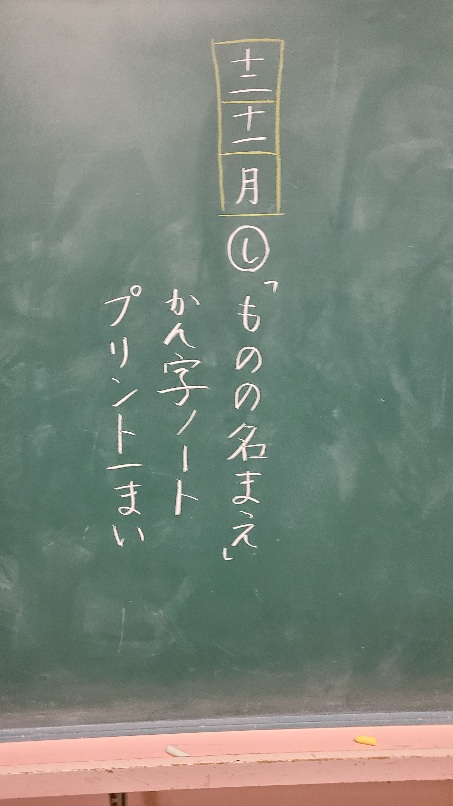 十二
十一
月
し「ものの名まえ」
かん字ノート
プリント一まい